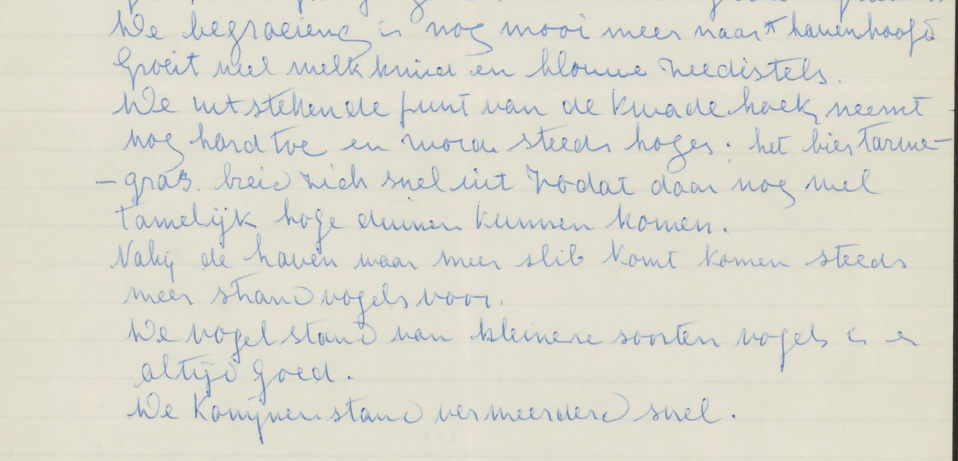 De begroeieng is nog mooi meer naar 't havenhoofd
Groeit veel melkkruid en blouwe zeedistels.
De uitstekende punt van de kwade hoek neemt
nog hard toe en word steeds hoger; het biestarwe-
-gras. breid zich snel uit zodat daar nog wel
tamelijk hoge duinen kunnen komen.
Nabij de haven waar meer slib komt komen steeds
meer strand vogels voor.
De vogelstand van kleinere soorten vogels is er
altijd goed.
De Konijnenstand vermeerderd snel.